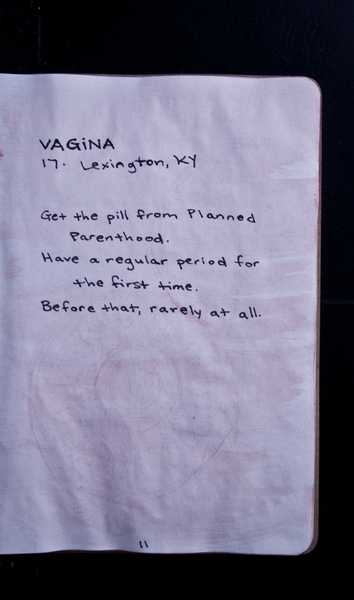 VAGiNA
17. Lexington, KY
Get the pill from Planned
Parenthood.
Have a regular period for
the first time.
Before that, rarely at all.
11